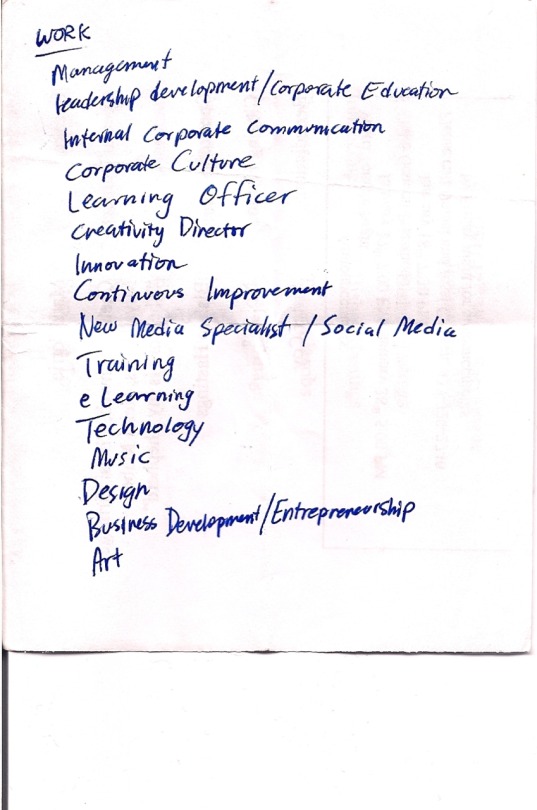 WORK
Management
Leadership development/Corporate Education
Internal Corporate Communication
Corporate Culture
Learning Officer
Creativity Director
Innovation
Continuous Improvement
New Media Specialist / Social Media
Training
e Learning
Technology
Music
Design
Business Development/Entrepreneurship
Art